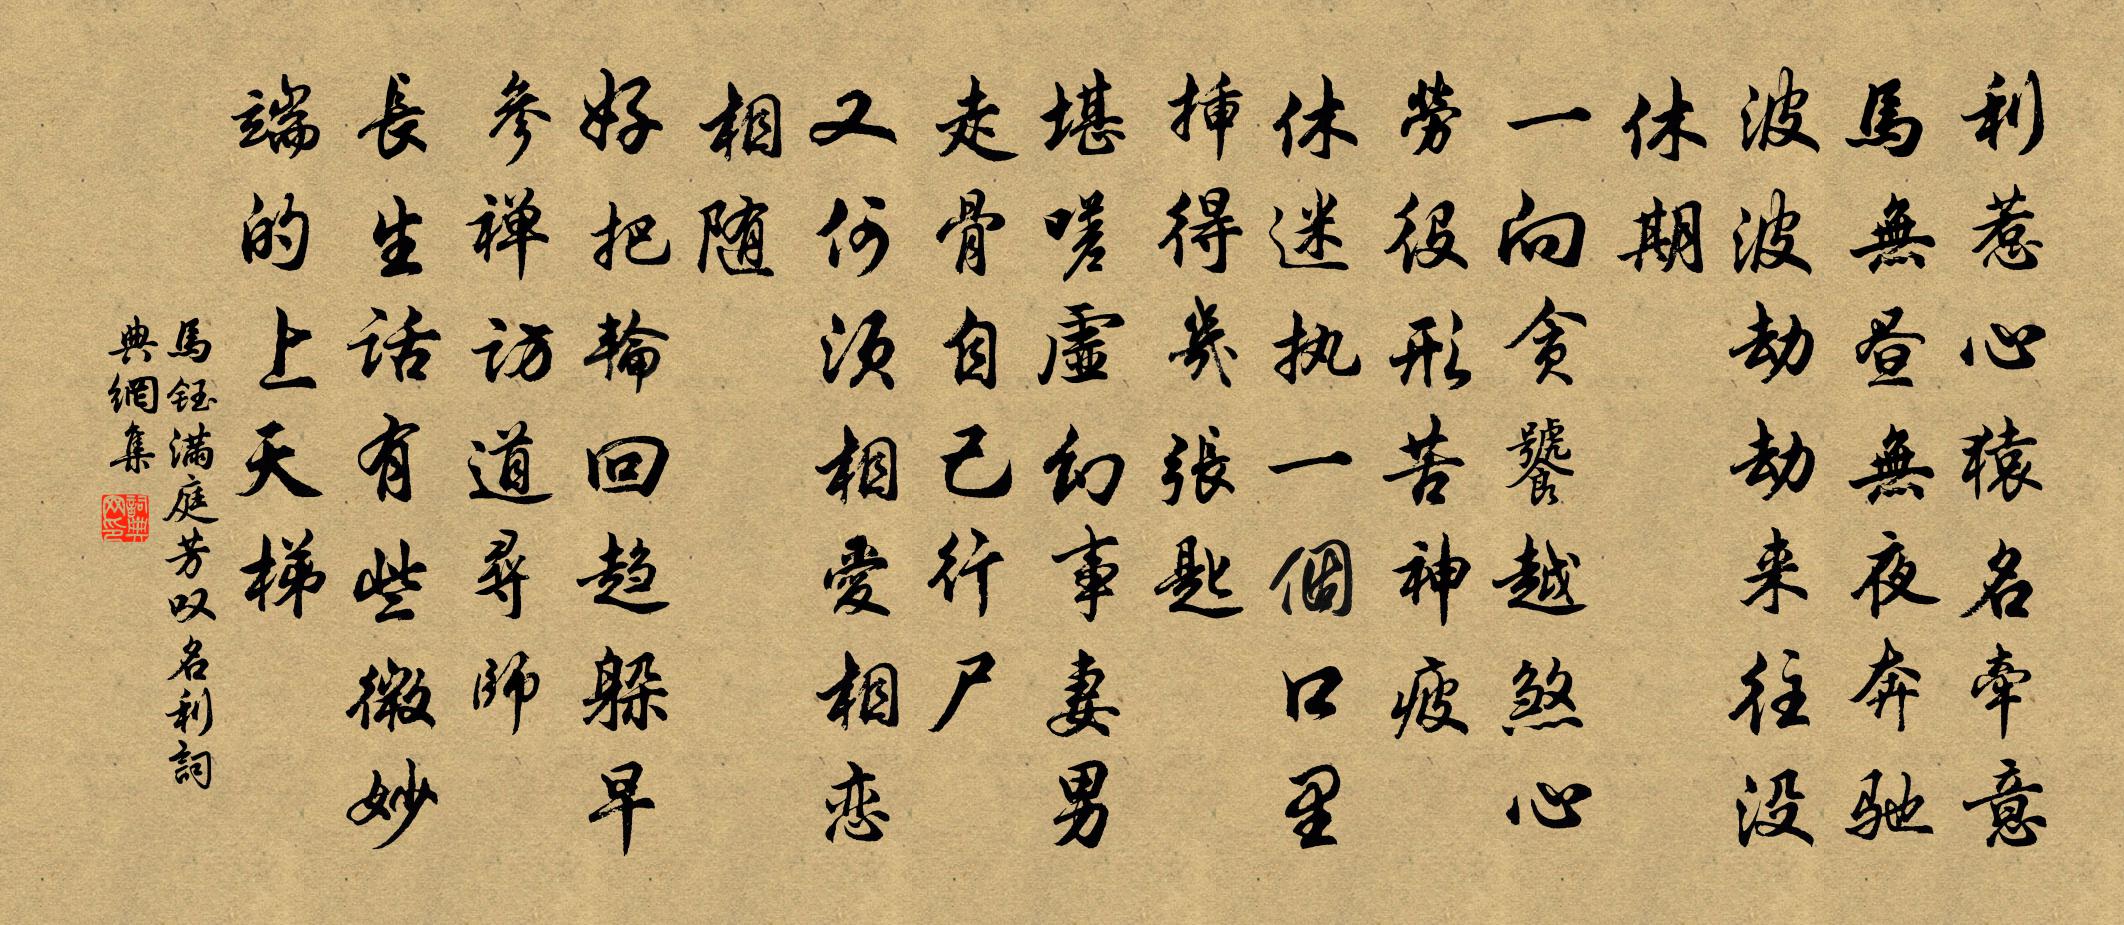 利惹心猿名牽意
馬無昼無夜奔馳
波波劫劫来往没
休期
一向贪饕越煞心
勞役形苦神疲
休迷执一個口里
挿得幾張匙
堪嗟虚幻事妻男
走骨自己行尸
又何须相愛相恋
相随
好把輪回趋躲早
參禅访道尋師
長生话有些微妙
端的上天梯
馬钰满庭芳叹名利詞
典網集
詞典網印